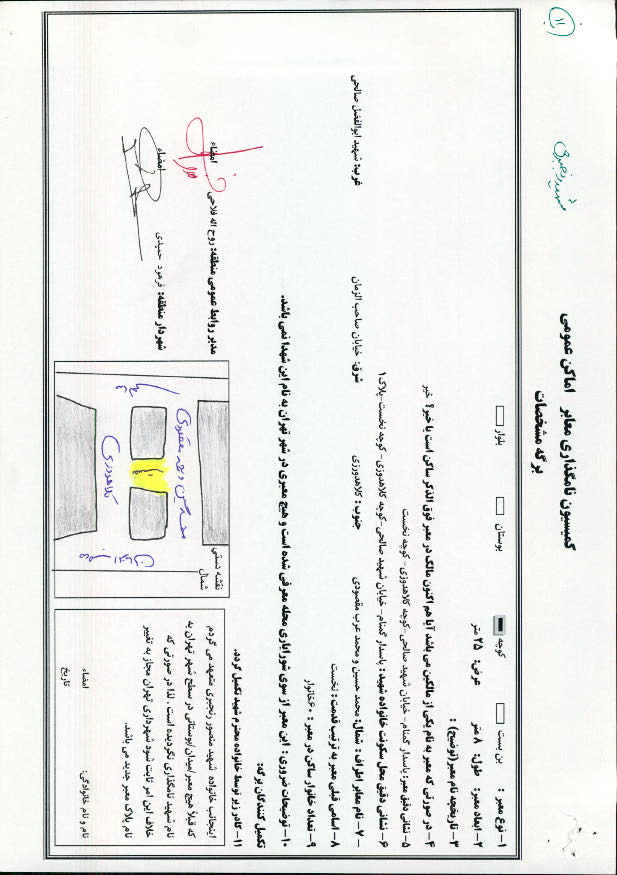 ۱۱
شهید رنجبری
کمیسیون نامگذاری معابر اماکن عمومی
برگه مشخصات
۱- نوع معبر : بن بست کوچه بوستان بلوار
۲- ابعاد معبر: طول: ۸ متر عرض: ۲۵ متر
۳- تاریخچه نام معبر(توضیح) :
۴- در صورتی که معبر به نام یکی از مالکین می باشد آیا هم اکنون مالک در معبر فوق الذکر ساکن است یا خیر؟ خیر
۵- نشانی دقیق معبر: پاسدار گمنام- خیابان شهید صالحی- کوچه کلاهدوزی- کوچه نخست
۶- نشانی دقیق محل سکونت خانواده شهید : پاسدار گمنام- خیابان شهید صالحی- کوچه کلاهدوزی- کوچه نخست-پلاک ۱
۷- نام معابر اطراف : شمال: محمد حسین و محمد عرب مقصودی جنوب : کلاهدوزی شرق: خیابان صاحب الزمان غرب: شهید ابوالفضل صالحی
۸- اسامی قبلی معبر به ترتیب قدمت: نخست
۹- تعداد خانوار ساکن در معبر : ۶۰خانوار
۱۰- توضیحات ضروری : این معبر از سوی شورایاری محله معرفی شده است و هیچ معبری در شهر تهران به نام این شهدا نمی باشد.
تکمیل کنندگان برگه:
مدیر روابط عمومی منطقه: روح اله فلاحی امضاء
شهردار منطقه: فرهود حمیدی امضاء
۱۱- کادر زیر توسط خانواده محترم شهید تکمیل گردد.
اینجانب خانواده شهید منصور رنجبری متعهد می گردم
که قبلاً هیچ معبر/میدان/بوستانی در سطح شهر تهران به
نام شهید نامگذاری نگردیده است . لذا در صورتی که
خلاف این امر ثابت شود شهرداری تهران مجاز به تغییر
نام پلاک معبر جدید می باشد.
نام و نام خانوادگی: امضاء
تاریخ
نقشه دستی
شمال
کلاهدوزی